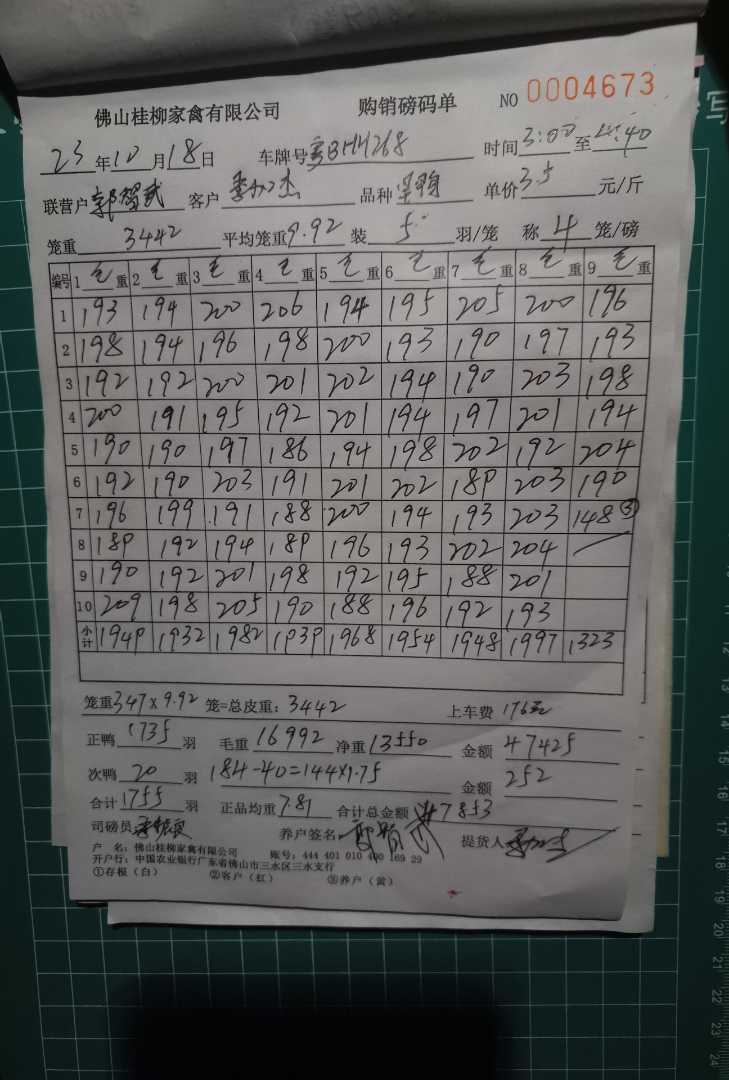 佛山桂柳家禽有限公司 购销磅码单 NO 0004673
23年10月18日 车牌号 BHH268 时间3:00至4:40
联营户 郭智武 客户 李加杰 品种 单价3.5元/斤
笼重 3442 平均笼重9.92 装 5 羽/笼 称 4 笼/磅
编号 1毛重 2毛重 3毛重 4毛重 5毛重 6毛重 7毛重 8毛重 9毛重
1 193 194 200 206 194 195 205 200 196
2 198 194 196 198 200 193 190 197 193
3 192 192 200 201 202 194 190 203 198
4 200 191 195 192 201 194 197 201 194
5 190 190 197 186 194 198 202 192 204
6 192 190 203 191 201 202 189 203 190
7 196 199 191 188 200 194 193 203 148③
8 189 192 194 189 196 193 202 204
9 190 192 201 198 192 195 188 201
10 209 198 205 190 188 196 192 193
小计 1949 1932 1982 1939 1968 1954 1948 1997 1323
笼重347×9.92 笼=总皮重:3442 上车费 176元
正鸭 1735 羽 毛重 16992 净重 13550 金额 47425
次鸭 20 羽 184-40=144×1.75 金额 252
合计1755羽 正品均重7.81 合计总金额 47853
司磅员 养户签名 郭智武 提货人 李加杰
户 名:佛山桂柳家禽有限公司 账号:444 401 010 400 169 29
开户行:中国农业银行广东省佛山市三水区三水支行
①存根(白) ②客户(红) ③养户(黄)